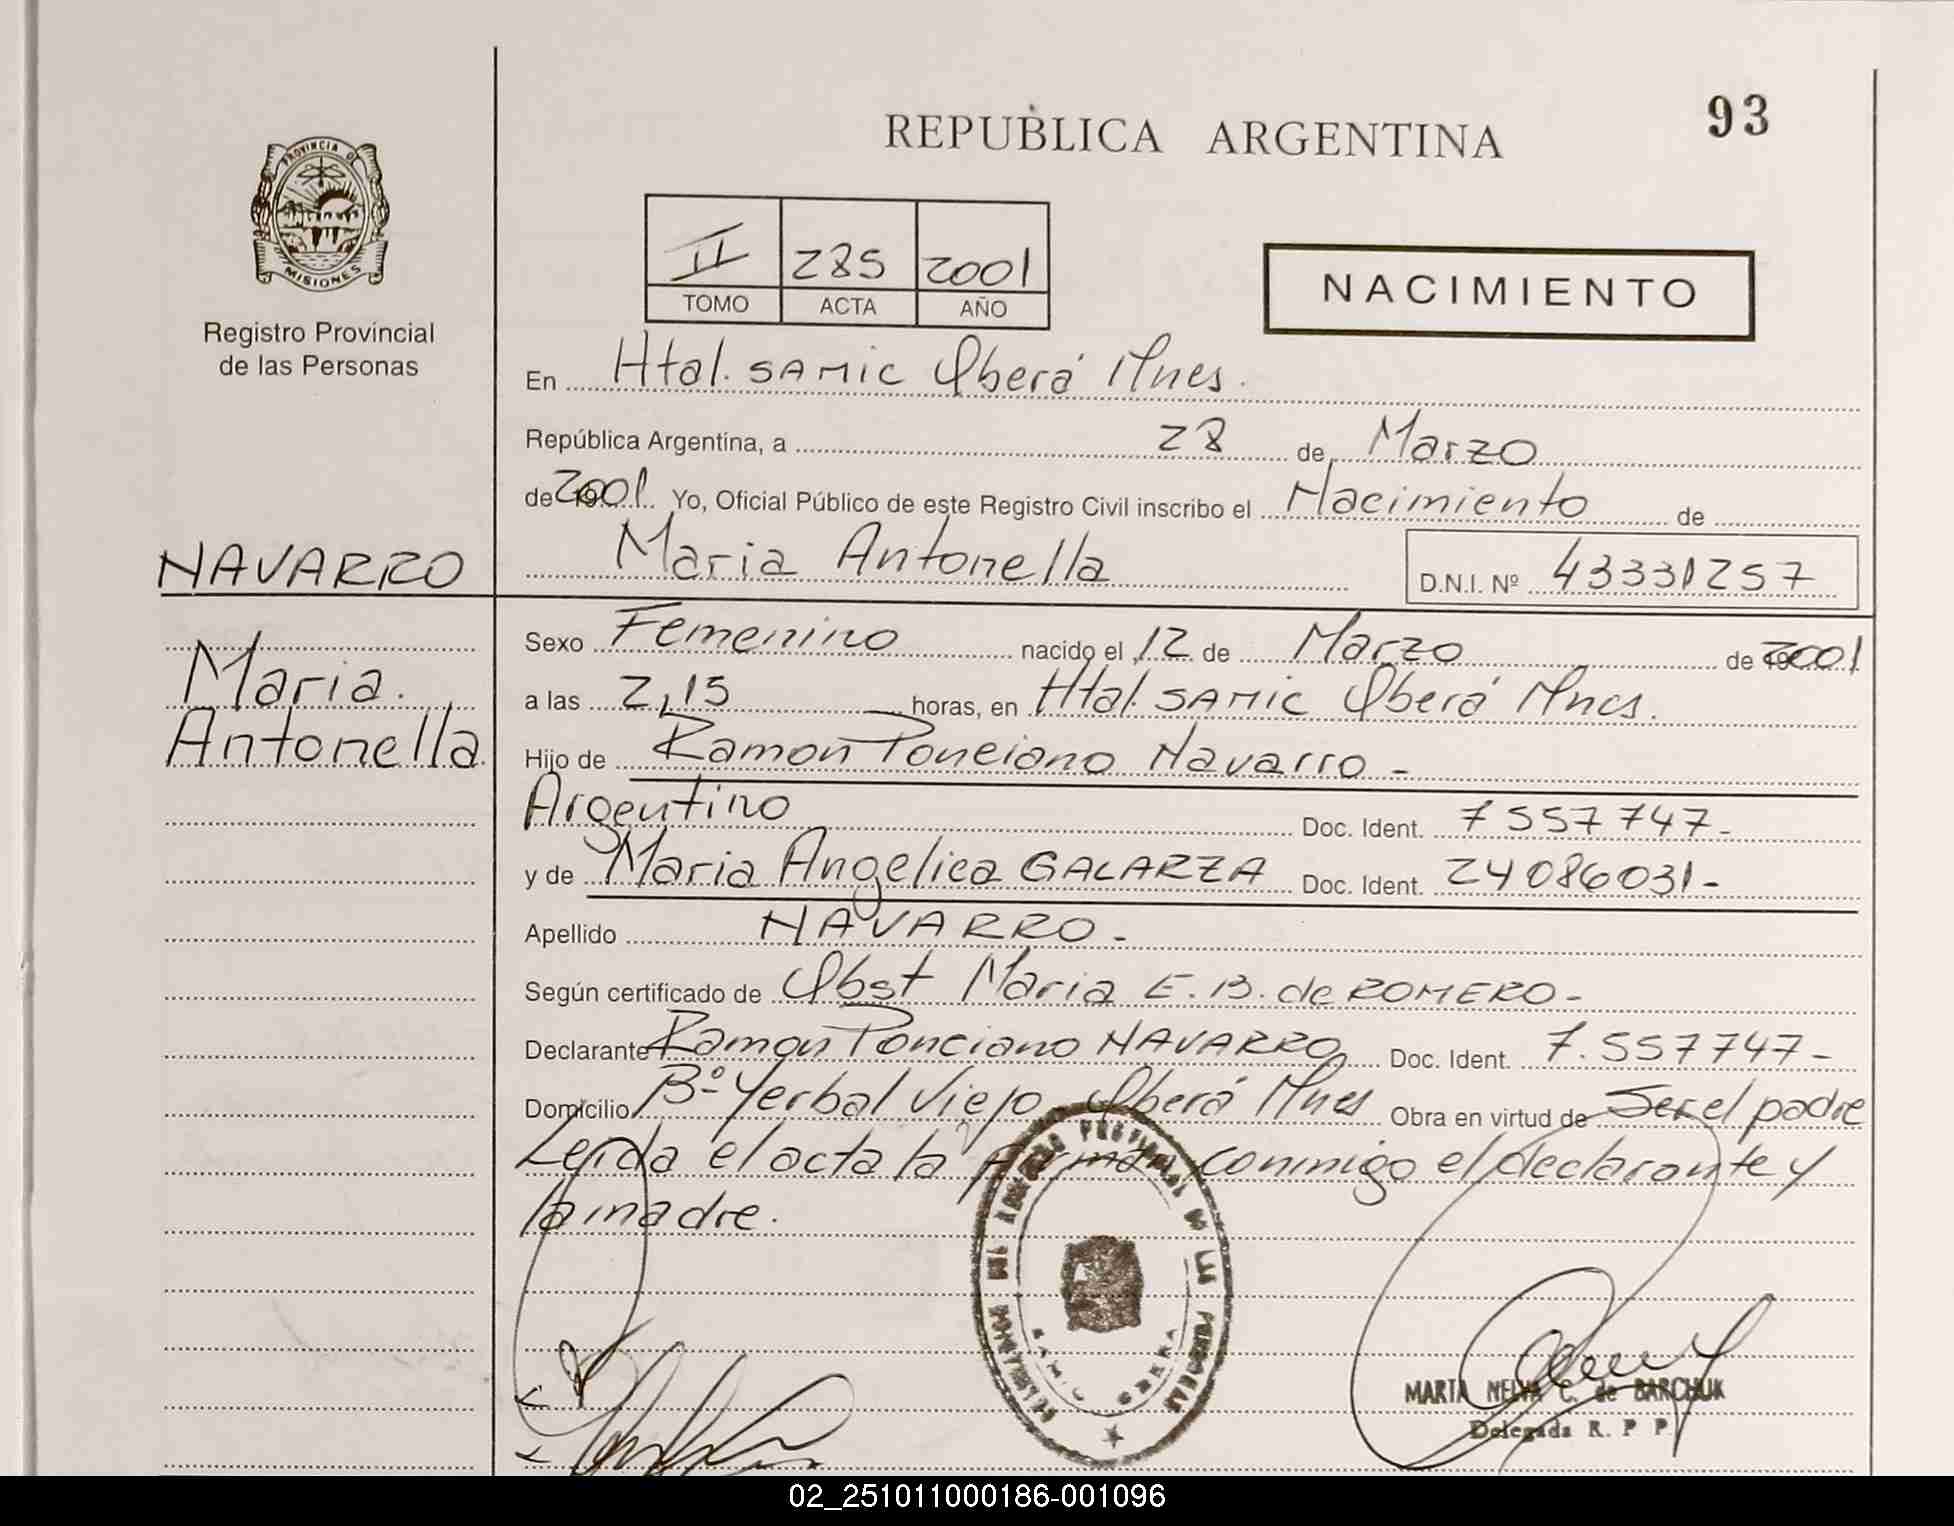 93
REPUBLICA ARGENTINA
PROVINCIA DE
MISIONES
Registro Provincial
de las Personas
II 285 2001
TOMO ACTA AÑO
NACIMIENTO
En Htal. SAMIC Oberá Mnes.
República Argentina, a 28 de Marzo
de 2001 Yo, Oficial Público de este Registro Civil inscribo el Nacimiento de
Maria Antonella D.N.I. Nº 43331257
NAVARRO
Maria.
Antonella.
Sexo Femenino nacido el 12 de Marzo de 2001
a las 2,15 horas, en Htal. SAMIC Oberá Mnes.
Hijo de Ramon Ponciano Navarro -
Argentino Doc. Ident. 7557747-
y de Maria Angelica GALARZA Doc. Ident. 24086031-
Apellido NAVARRO-
Según certificado de Obst Maria E. B. de ROMERO-
Declarante Ramon Ponciano NAVARRO Doc. Ident. 7.557747-
Domicilio Bº Yerbal Viejo Oberá Mnes Obra en virtud de Ser el padre
Leida el acta la firman conmigo el declarante y
la madre.
SAMIC OBERA
MARTA NELVA C. de BARCHUK
Delegada R. P P.
02_251011000186-001096